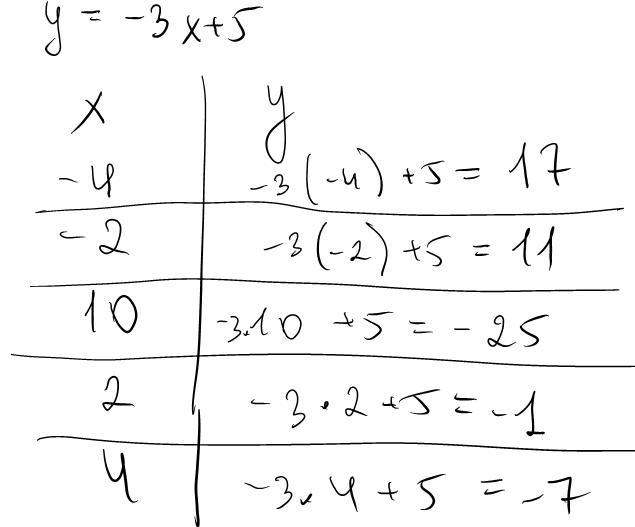 y = -3x+5
x y
-4 -3(-4)+5 = 17
-2 -3(-2)+5 = 11
10 -3.10 +5 = -25
2 -3·2+5 = -1
4 -3.4+5 = -7